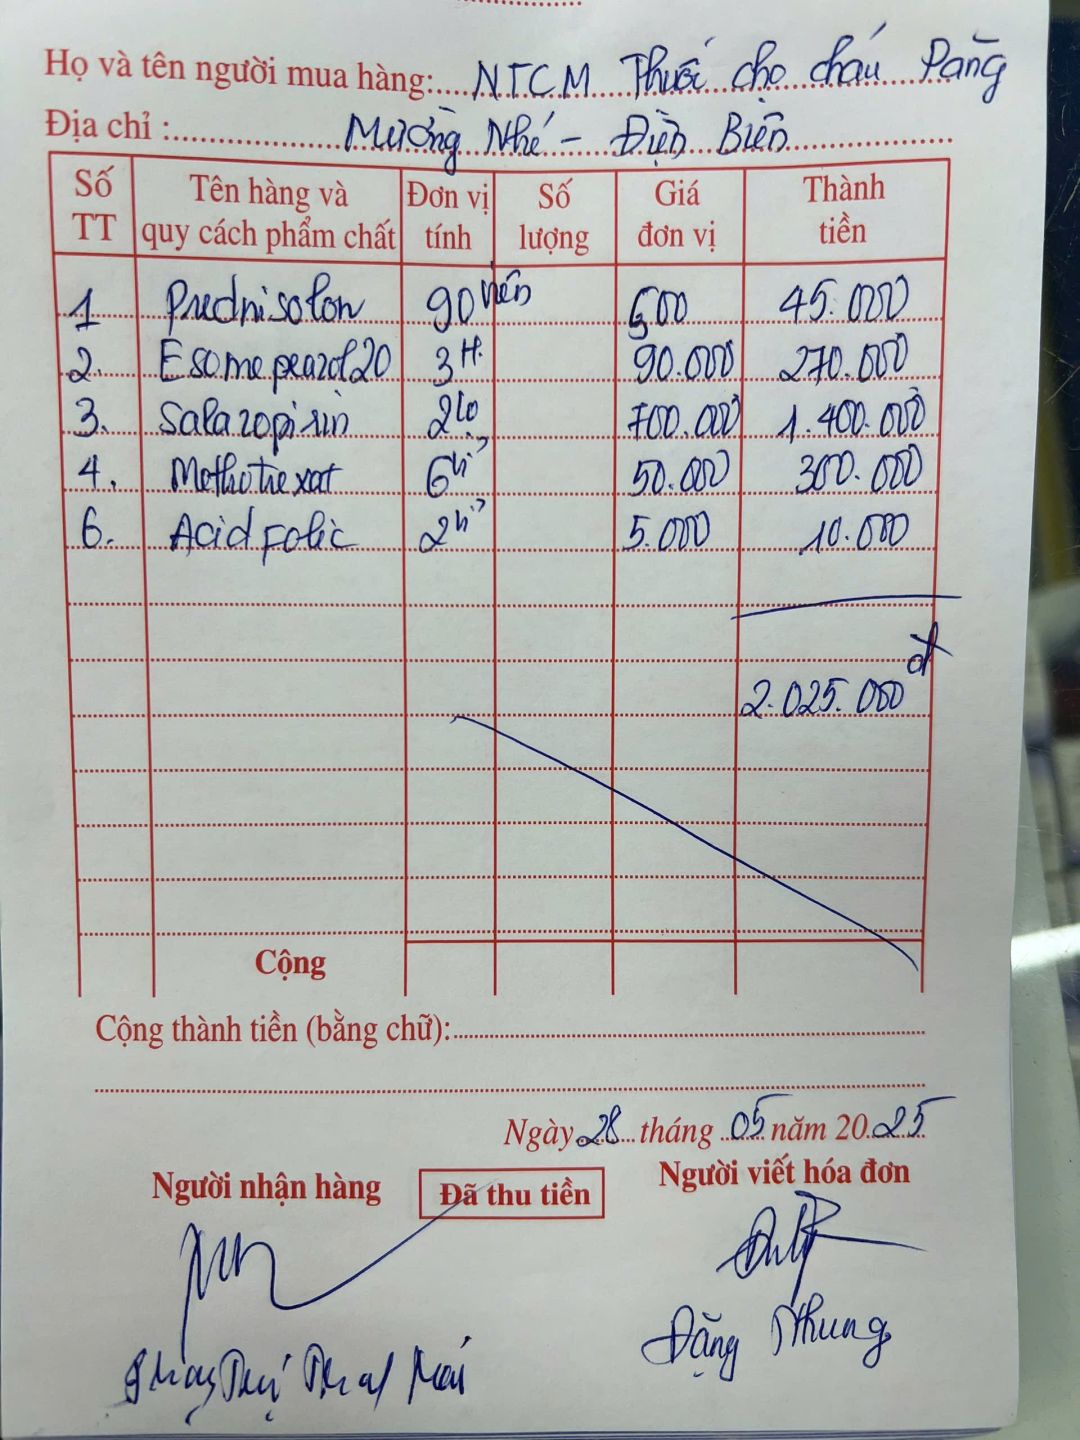 Họ và tên người mua hàng: NTCM Thuốc cho cháu Pàng
Địa chỉ : Mường Nhé - Điện Biên
Số TT Tên hàng và quy cách phẩm chất Đơn vị tính Số lượng Giá đơn vị Thành tiền
1 Prednisolon 90 viên 500 45.000
2. Esomeprazol 20 3 H. 90.000 270.000
3. Salazopirin 2 lọ 700.000 1.400.000
4. Methotrexat 6 vỉ 50.000 300.000
6. Acid Folic 2 vỉ 5.000 10.000
2.025.000 đ
Cộng
Cộng thành tiền (bằng chữ):
Ngày 28 tháng 05 năm 2025
Người nhận hàng Đã thu tiền Người viết hóa đơn
Đặng Nhung